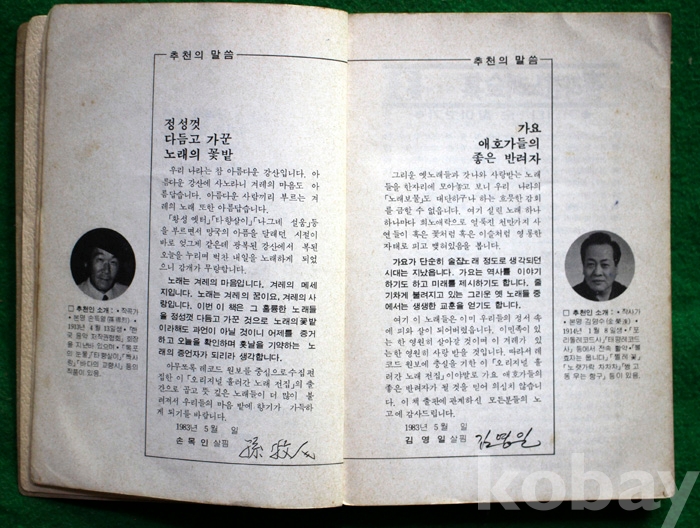 추천의 말씀
정성껏
다듬고 가꾼
노래의 꽃밭
우리 나라는 참 아름다운 강산입니다. 아
름다운 강산에 사노라니 겨레의 마음도 아
름답습니다. 아름다운 사람끼리 부르는 겨
레의 노래 또한 아름답습니다.
「황성 옛터」「타향살이」「나그네 설움」등
을 부르면서 망국의 아픔을 달레던 시절이
바로 엊그제 같은데 광복된 강산에서 복된
오늘을 누리며 벅찬 내일을 노래하게 되었
으니 감개가 무량합니다.
노래는 겨레의 마음입니다. 겨레의 메세
지입니다. 노래는 겨레의 꿈이요, 겨레의 사
랑입니다. 이번 이 책은 그 훌륭한 노래들
을 정성껏 다듬고 가꾼 것으로 노래의 꽃밭
이라해도 과언이 아닐 것이니 어제를 증거
하고 오늘을 확인하며 훗날을 기약하는 노
래의 증언자가 되리라 생각합니다.
아무쪼록 레코드 원보를 중심으로 수집 편
집한 이「오리지널 흘러간 노래 전집」의 출
간으로 꿈고 뜻 깊은 노래들이 더 많이 불
려져서 우리들의 마음 밭에 향기가 가득하
게 되기를 바랍니다.
1983년 5월 일
손목인 살핌
孫牧人
□ 추천인 소개 : • 작곡가
• 본명 손득렬
1913년 4월 13일생 •
음악 저작권협회, 회장
를 지낸바 있으며 • 「목포
의 눈물」「타향살이」「짝사
랑」「바다의 교향시」등의
작품이 있음.
추천의 말씀
가요
애호가들의
좋은 반려자
그리운 옛노래들과 갖나와 사랑받는 노래
들을 한자리에 모아놓고 보니 우리 나라의
「노래보물」도 대단하구나 하는 흐뭇한 감회
를 금할 수 없읍니다. 여기 실린 노래 하나
하나마다 희노애락으로 얼룩진 천만가지 사
연들이 혹은 꽃처럼 혹은 이슬처럼 영롱한
자태로 피고 맺혀있음을 봅니다.
가요가 단순히 술잡노래 정도로 생각되던
시대는 지났읍니다. 가요는 역사를 이야기
하기도 하고 미래를 제시하기도 합니다. 줄
기차게 불려지고 있는 그리운 옛 노래들 중
에서는 생생한 교훈을 얻기도 합니다.
여기 이 노래들은 이미 우리들의 정서 속
에 피와 살이 되어버렸읍니다. 이민족이 있
는 한 영원히 살아갈 것이며 이 겨레가 있
는한 영원히 사랑 받을 것입니다. 따라서 레
코드 원보에 중심을 기한 이「오리지널 흘러
간 노래 전집」이야말로 가요 애호가들의
좋은 반려자가 될 것을 믿어 의심치 않습니
다. 이 책 출판에 관계하신 모든분들의 노
고에 감사드립니다.
1983년 5월 일
김영일 살핌
김영일
□ 추천인 소개 : • 작사가
• 본명 김영수
1914년 1월 8일생 •「포
리돌레코드사」「태평레코드
사」등에서 전속 활약 •「불
효자는 웁니다」「찔레꽃」
「노랫가락 차차차」「범 고
동 우는 항구」등이 있음.
kobay